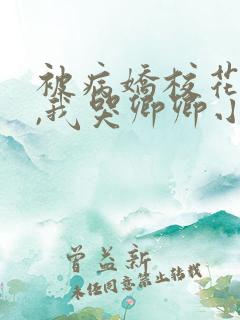 被病娇校花
,我哭卿卿小
曾益新
未经同意禁止转载